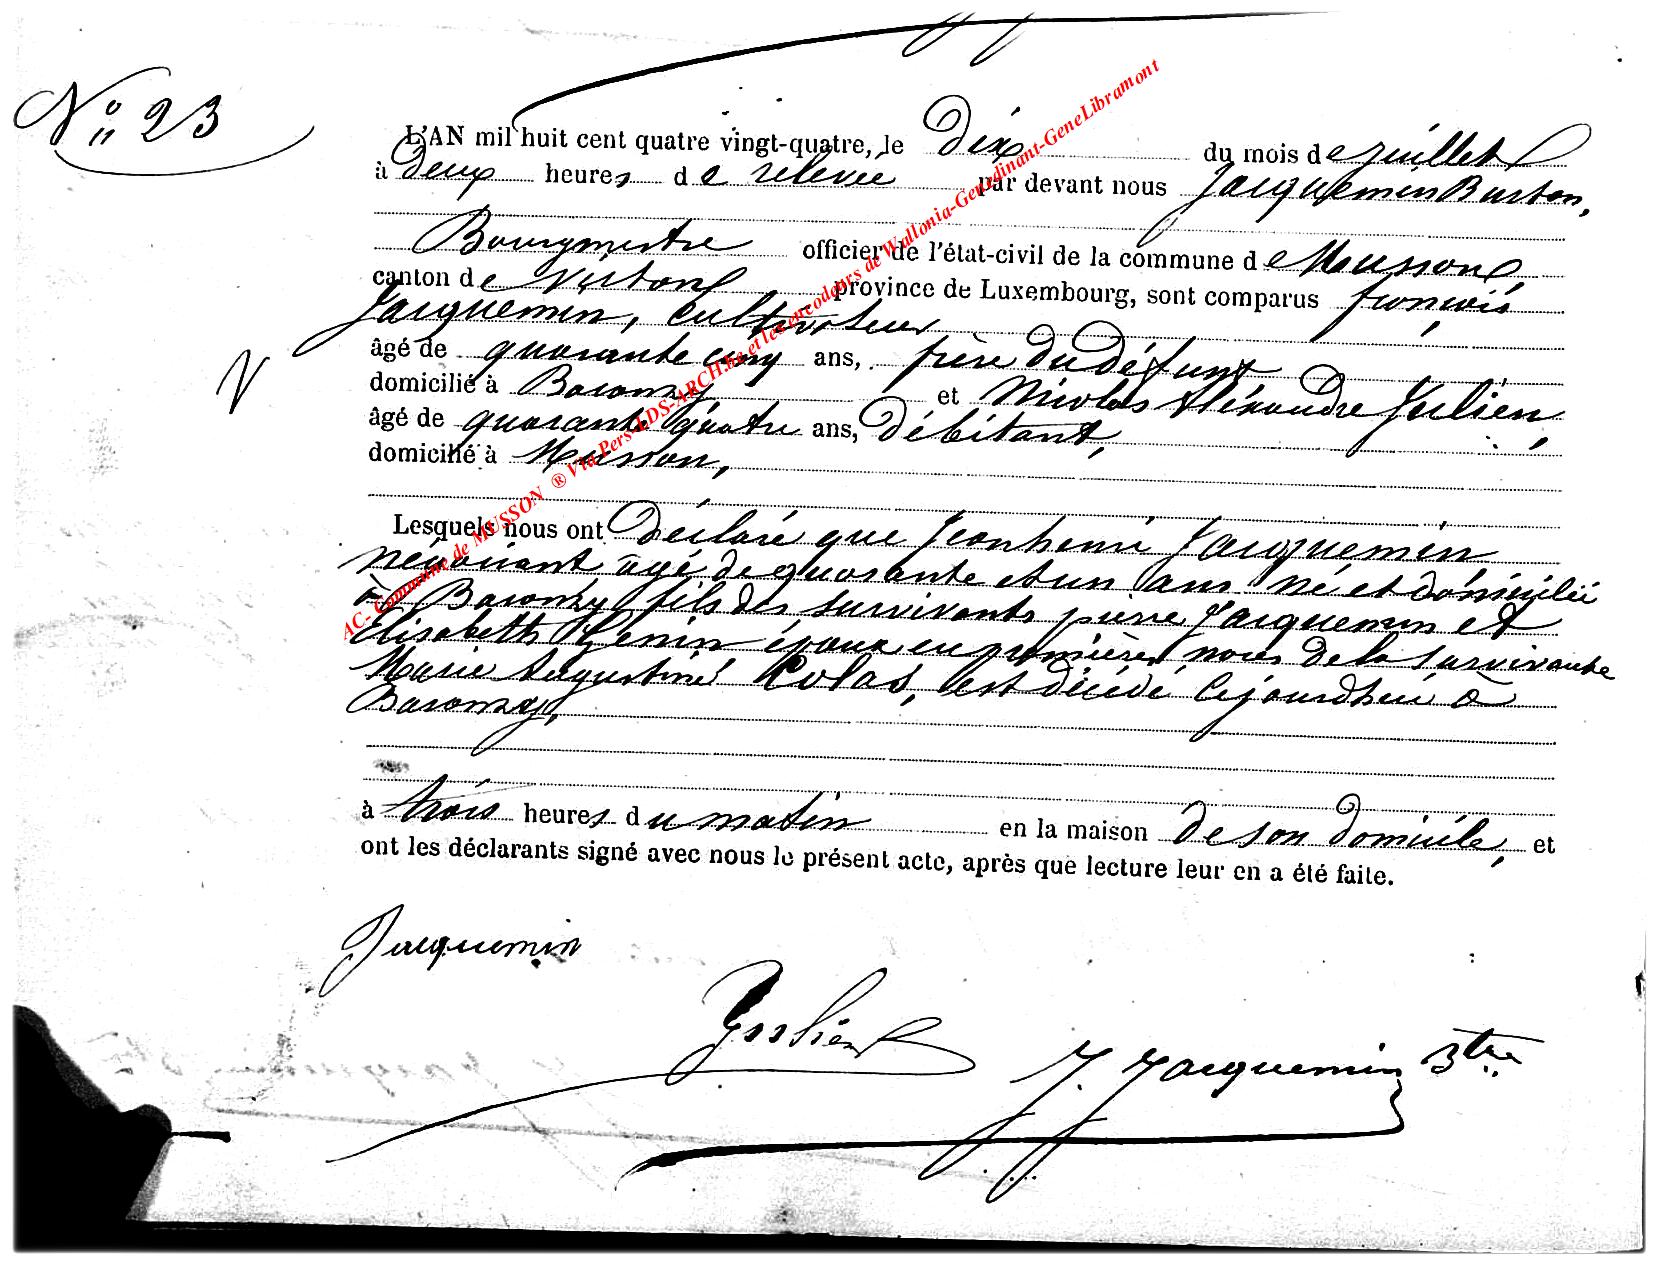 N° 23
L'AN mil huit cent quatre vingt-quatre, le dix du mois de juillet
à deux heures de relevée par devant nous Jacquemin Burton,
Bourgmestre officier de l'état-civil de la commune de Musson,
canton de Virton province de Luxembourg, sont comparus françois
Jacquemin, cultivateur
âgé de quarante cinq ans, frère du défunt
V
domicilié à Baranzy et Nicolas Alexandre Julien,
âgé de quarante quatre ans, débitant,
domicilié à Musson,
Lesquels nous ont déclaré que Jean henri Jacquemin
négociant âgé de quarante et un ans né et domicilié
à Baranzy, fils des survivants pierre Jacquemin et
Elisabeth Genin époux en premières noces de la survivante
Marie Augustine Colas, est décédé cejourdhui à
Baranzy,
à trois heures du matin en la maison de son domicile, et
ont les déclarants signé avec nous le présent acte, après que lecture leur en a été faite.
Jacquemin
Julien
J. Jacquemin Btre
AC- Commune de MUSSON ® Via Pers-LDS-ARCH.be et les encodeurs de Wallonia-Genedinant-GeneLibramont